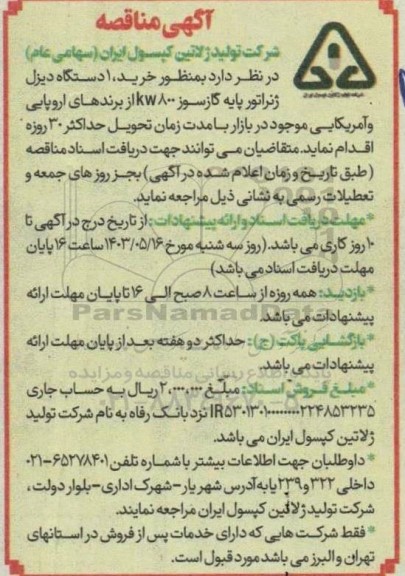 آگهی مناقصه
شرکت تولید ژلاتین کپسول ایران (سهامی عام)
در نظر دارد بمنظور خرید، ۱ دستگاه دیزل
ژنراتور پایه گازسوز ۸۰۰ kw از برندهای اروپایی
وآمریکایی موجود در بازار با مدت زمان تحویل حداکثر ۳۰ روزه
اقدام نماید. متقاضیان می توانند جهت دریافت اسناد مناقصه
(طبق تاریخ و زمان اعلام شده در آگهی) بجز روز های جمعه و
تعطیلات رسمی به نشانی ذیل مراجعه نماید.
*مهلت دریافت اسناد و ارائه پیشنهادات: از تاریخ درج در آگهی تا
۱۰ روز کاری می باشد. (روز سه شنبه مورخ ۱۴۰۳/۰۵/۱۶ ساعت ۱۶ پایان
مهلت دریافت اسناد می باشد)
*بازدید: همه روزه از ساعت ۸ صبح الی ۱۶ تا پایان مهلت ارائه
پیشنهادات می باشد.
ParsNamadData
*بازگشایی پاکت (ج): حداکثر دو هفته بعد از پایان مهلت ارائه
پیشنهادات می باشد.
*مبلغ فروش اسناد: مبلغ ۲.۰۰۰.۰۰۰ ریال به حساب جاری
نزد بانک رفاه به نام شرکت تولید
ژلاتین کپسول ایران می باشد.
* داوطلبان جهت اطلاعات بیشتر با شماره تلفن ۶۵۲۷۸۴۰۱-۰۲۱
داخلی ۳۲۲ و ۲۳۹ یا به آدرس شهریار - شهرک اداری - بلوار دولت ،
شرکت تولید ژلاتین کپسول ایران مراجعه نمایند.
* فقط شرکت هایی که دارای خدمات پس از فروش در استانهای
تهران و البرز می باشد مورد قبول است.